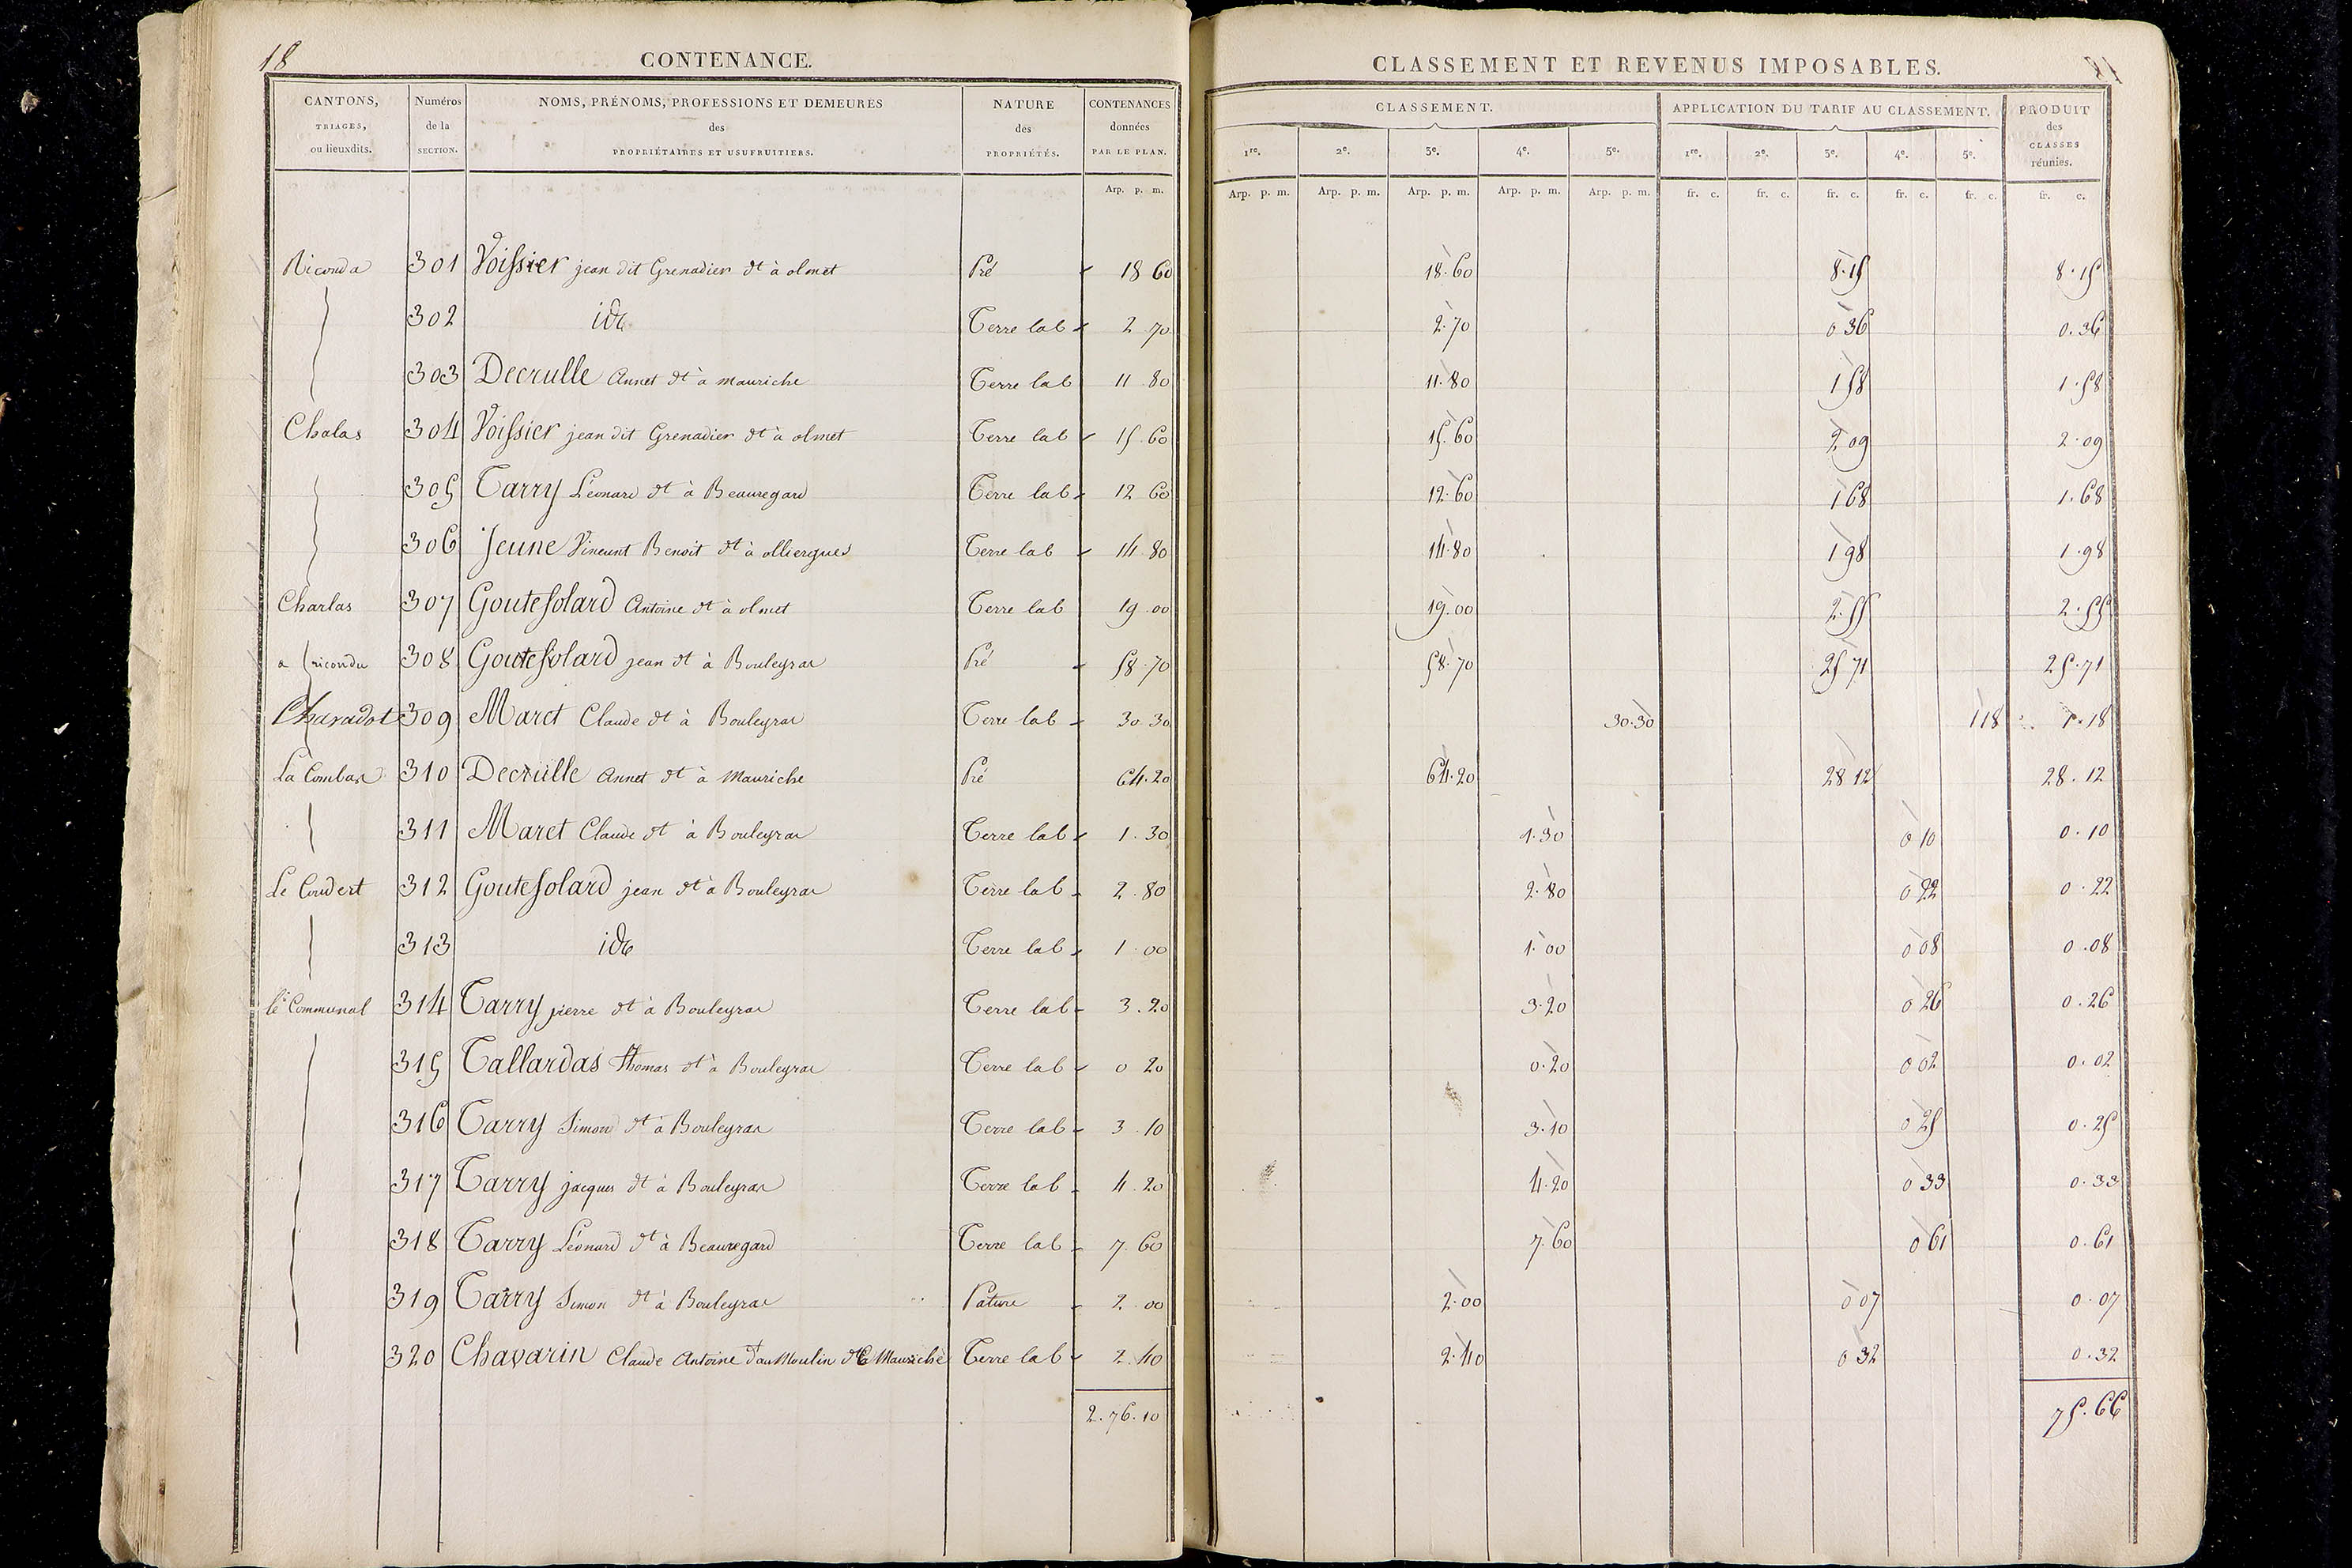 18
CONTENANCE.
CANTONS, TRIAGES, ou lieuxdits. Numéros de la SECTION. NOMS, PRÉNOMS, PROFESSIONS ET DEMEURES des PROPRIÉTAIRES ET USUFRUITIERS. NATURE des PROPRIÉTÉS. CONTENANCES données PAR LE PLAN.
Arp. p. m.
CLASSEMENT ET REVENUS IMPOSABLES.
CLASSEMENT. APPLICATION DU TARIF AU CLASSEMENT. PRODUIT des CLASSES réunies.
1re. 2e. 3e. 4e. 5e. 1re. 2e. 3e. 4e. 5e.
Arp. p. m. Arp. p. m. Arp. p. m. Arp. p. m. Arp. p. m. fr. c. fr. c. fr. c. fr. c. fr. c. fr. c.
Riconda 301 Voissier jean dit Grenadier dt à olmet Pré 18 60 18.60 8.15 8.15
302 id Terre lab 2 70 2.70 0 36 0.36
303 Decrulle Annet dt à mauriche Terre lab 11 80 11.80 1 58 1.58
Chalas 304 Voissier jean dit Grenadier dt à olmet Terre lab 15.60 15.60 2 09 2.09
305 Tarry Léonard dt à Beauregard Terre lab 12 60 12.60 1 68 1.68
306 Jeune Vincent Benoit dt à olliergues Terre lab 14 80 14.80 1 98 1.98
Charlas 307 Goutesolard Antoine dt à olmet Terre lab 19.00 19.00 2.55 2.55
a ricondu 308 Goutesolard jean dt à Bouleyras Pré 58.70 58.70 25 71 25.71
Charadot 309 Maret Claude dt à Bouleyras Terre lab 30 30 30.30 1 18 1.18
La Combas 310 Decrulle Annet dt à Mauriche Pré 64.20 64.20 28 12 28.12
311 Maret Claude dt à Bouleyras Terre lab 1.30 1.30 0 10 0.10
Le Coudert 312 Goutesolard jean dt à Bouleyras Terre lab 2.80 2.80 0 22 0.22
313 id Terre lab 1.00 1.00 0 08 0.08
le Communal 314 Tarry pierre dt à Bouleyras Terre lab 3.20 3.20 0 26 0.26
315 Tallardas Thomas dt à Bouleyras Terre lab 0 20 0.20 0 02 0.02
316 Tarry Simon dt à Bouleyras Terre lab 3.10 3.10 0 25 0.25
317 Tarry jacques dt à Bouleyras Terre lab 4.20 4.20 0 33 0.33
318 Tarry Léonard dt à Beauregard Terre lab 7.60 7.60 0 61 0.61
319 Tarry Simon dt à Bouleyras Pature 2.00 2.00 0 07 0.07
320 Chavarin Claude Antoine dt au Moulin de Mauriche Terre lab 2.40 2.40 0 32 0.32
2.76.10 75.66